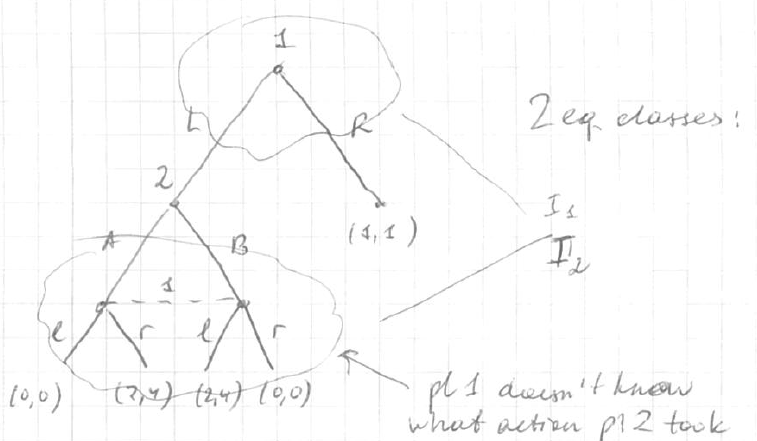 1
L R
2 eq classes:
2
(1,1)
I1
I2
A B
1
l r l r
(0,0) (2,4) (2,4) (0,0)
pl 1 doesn't know
what action pl 2 took